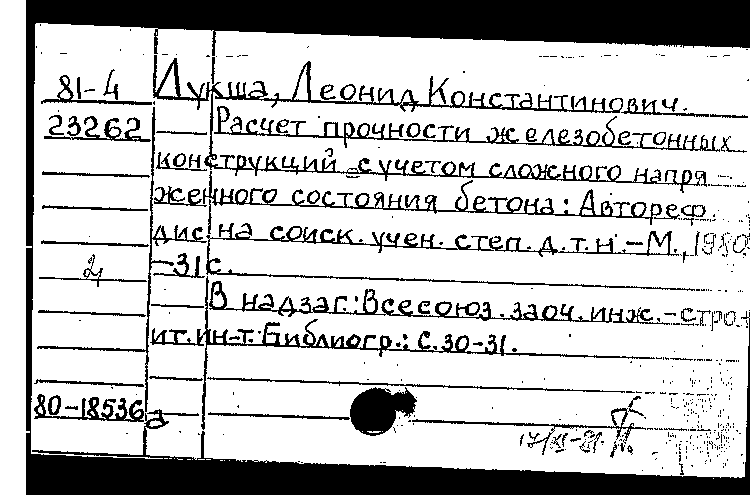 81-4 Лукша, Леонид Константинович.
23262 Расчет прочности железобетонных
конструкций с учетом сложного напря-
женного состояния бетона: Автореф.
дис. на соиск. учен. степ. д.т.н. -М., 1980.
2 -31с.
В надзаг.: Всесоюз. заоч. инж.-строи
ит. ин-т. Библиогр.: С.30-31.
80-18536а